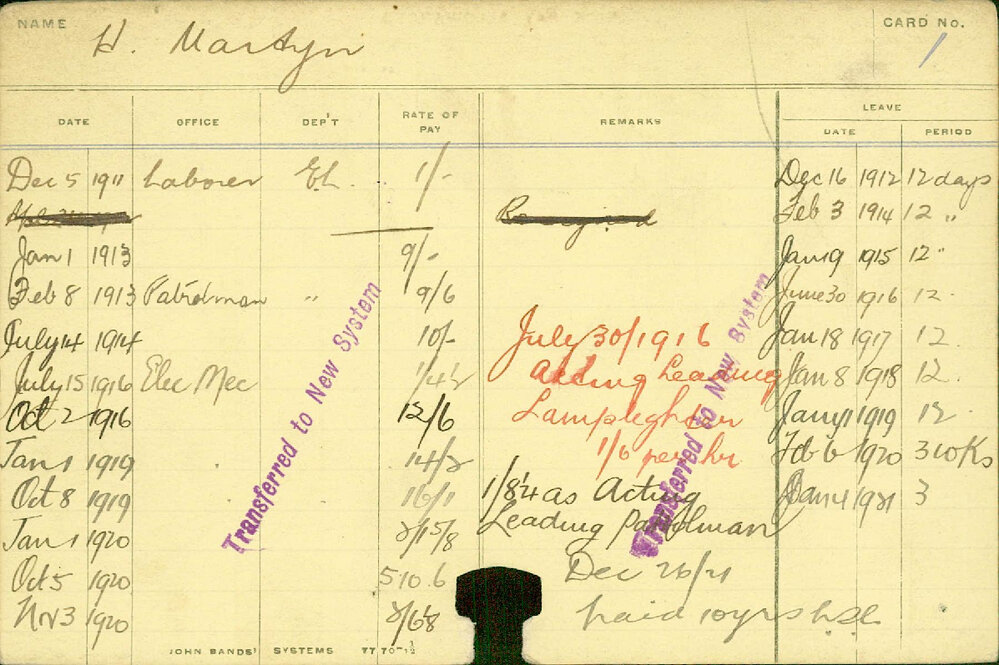 NAME H. Martyn CARD No. 1
DATE OFFICE DEP'T RATE OF PAY REMARKS LEAVE
DATE PERIOD
Dec 5 1911 Laborer EL. 1/- Dec 16 1912 12 days
Feb 3 1914 12 "
Jan 1 1913 9/- Jan 19 1915 12 "
Feb 8 1913 Patrolman " 9/6 June 30 1916 12 .
July 14 1914 10/- July 30/1916 Jan 18 1917 12 .
July 15 1916 Elec Mec Acting Leading Jan 8 1918 12 .
Oct 2 1916 12/6 Lamplighter 1919 12 .
Jan 1 1919 1/6 per hr Feb 6 1920 3 wks
Oct 8 1919 16/1 1/8 as Acting Jan 4 1921 3
Jan 1 1920 Leading Patrolman
Oct 5 1920 510.6 Dec
Nov 3 1920 paid 10yrs
Transferred to New System
Transferred to New System
JOHN SANDS' SYSTEMS